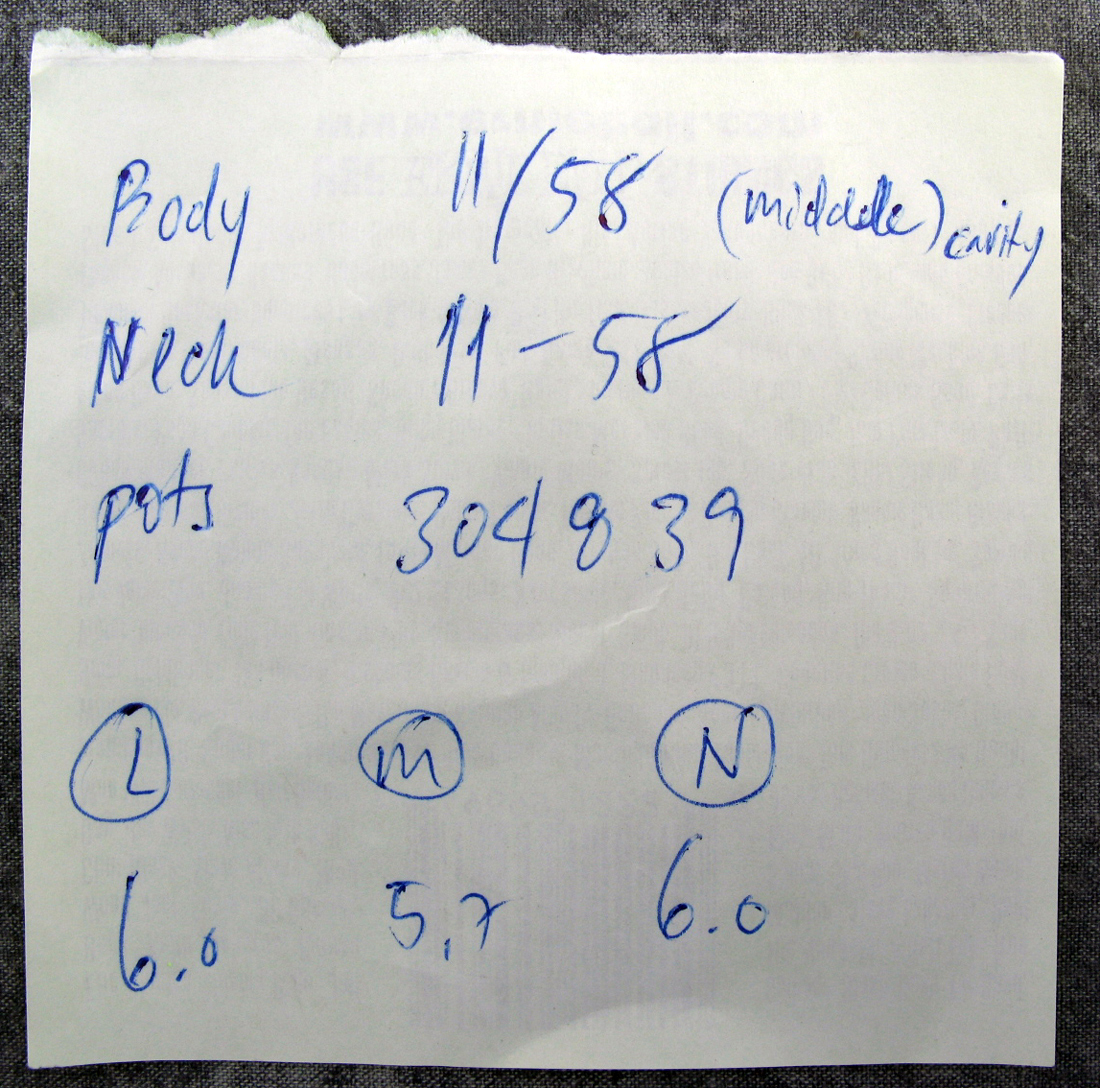 Body 11/58 (middle) cavity
Neck 11-58
pots 304 8 39
L M N
6.0 5,7 6.0